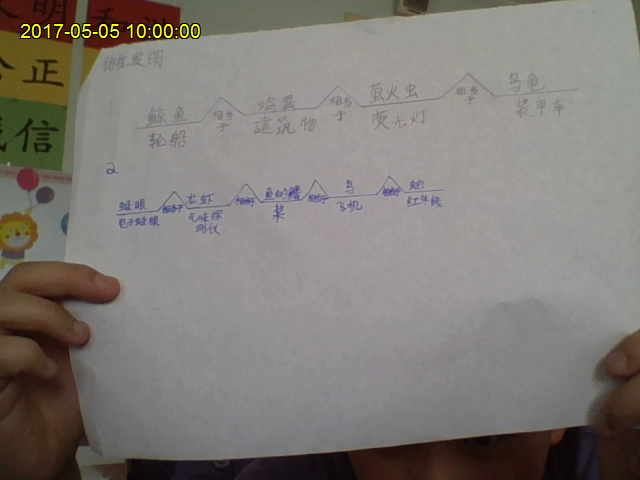 2017-05-05 10:00:00
文明
公正
诚信
仿生发明
1
鲸鱼 相当于 鸡蛋 相当于 萤火虫 相当于 乌龟
轮船 建筑物 荧光灯 装甲车
2
蛙眼 相当于 龙虾 相当于 鱼的鳍 相当于 鸟 相当于 蛇
电子蛙眼 气味探测仪 桨 飞机 红外线